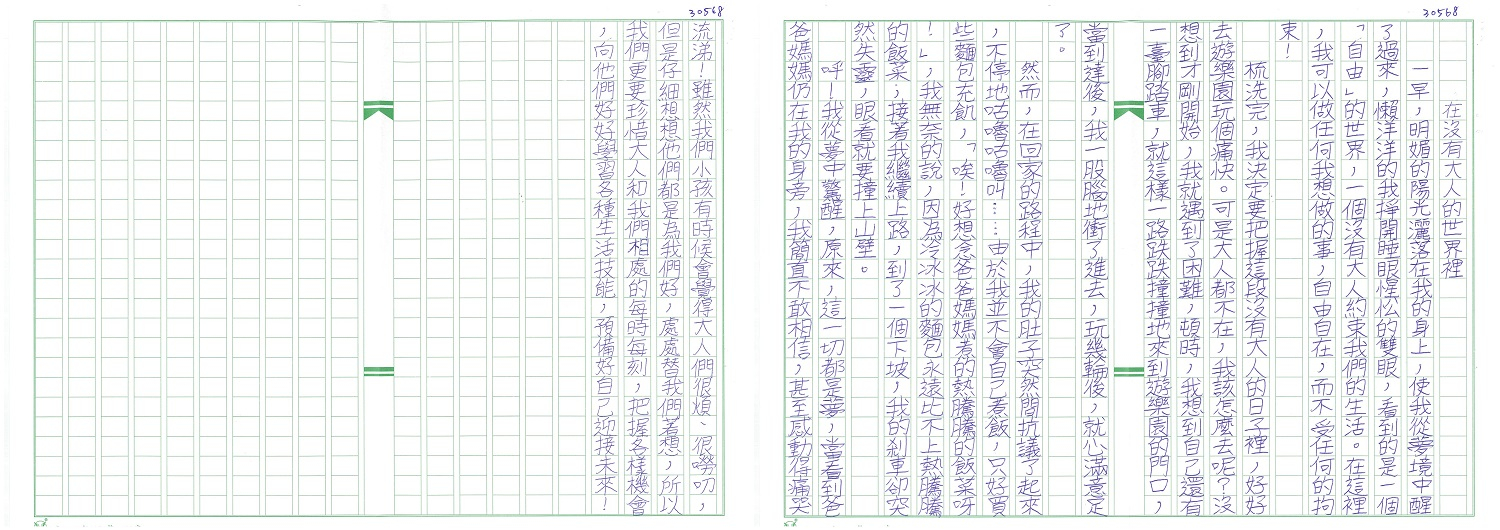 30568
在沒有大人的世界裡
一早，明媚的陽光灑落在我的身上，使我從夢境中醒
了過來，懶洋洋的我掙開睡眼惺忪的雙眼，看到的是一個
「自由」的世界，一個沒有大人約束我們的生活。在這裡
，我可以做任何我想做的事，自由自在，而不受任何的拘
束！
梳洗完，我決定要把握這段沒有大人的日子裡，好好
去遊樂園玩個痛快。可是大人都不在，我該怎麼去呢？沒
想到才剛開始，我就遇到了困難，頓時，我想到自己還有
一臺腳踏車，就這樣一路跌跌撞撞地來到遊樂園的門口，
當到達後，我一股腦地衝了進去，玩幾輪後，就心滿意足
了。
然而，在回家的路程中，我的肚子突然間抗議了起來
，不停地咕嚕咕嚕叫……由於我並不會自己煮飯，只好買
些麵包充飢，「唉！好想念爸爸媽媽煮的熱騰騰的飯菜呀
！」，我無奈的說，因為冷冰冰的麵包永遠比不上熱騰騰
的飯菜；接著我繼續上路，到了一個下坡，我的剎車卻突
然失靈，眼看就要撞上山壁。
呼！我從夢中驚醒，原來，這一切都是夢，當看到爸
爸媽媽仍在我的身旁，我簡直不敢相信，甚至感動得痛哭
30568
流涕！雖然我們小孩有時候會覺得大人們很煩、很嘮叨，
但是仔細想想他們都是為我們好，處處替我們著想，所以
我們更要珍惜大人和我們相處的每時每刻，把握各樣機會
，向他們好好學習各種生活技能，預備好自己迎接未來！